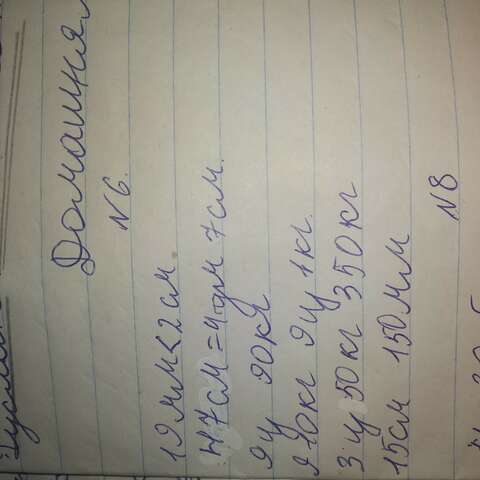 Домашняя
N 6.
19 мм < 2 см
47 см = 4 дм 7 см.
9 ц 90 кг
910 кг 9 ц 1 кг.
3 ц 50 кг 350 кг
15 см 150 мм
N 8